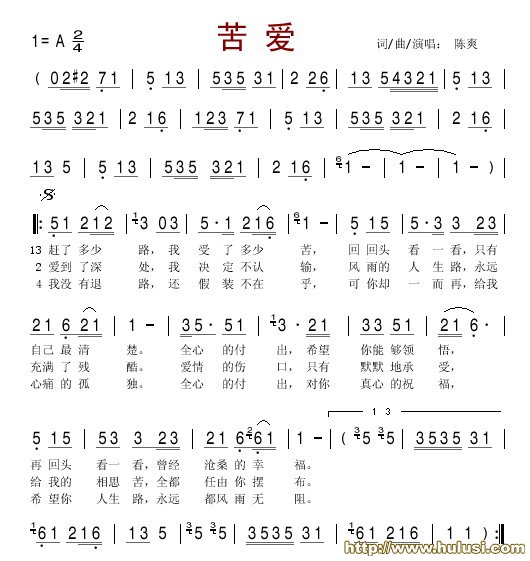 苦 爱
1= A 2/4 词/曲/演唱： 陈爽
( 02#2 71 | 5 13 | 535 31 | 2 26 | 13 54321 |
535 321 | 2 16 | 123 71 | 5 13 | 535 321 | 2 16 |
13 5 | 5 13 | 535 321 | 2 16 | 6 1 - | 1 - | 1 - )
51 212 | 1 3 03 | 5·1 216 | 6 1 - | 5 15 | 5·3 3 23 |
13 赶了多少 路，我 受 了 多少 苦， 回 回头 看 一 看，只有
2 爱到了深 处，我 决 定 不认 输， 风 雨的 人 生 路，永远
4 我没有退 路，还 假 装 不在 乎， 可 你却 一 而 再，给我
21 6 21 | 1 - | 35· 51 | 1 3· 21 | 51 51 | 221 6· |
自己 最 清 楚。 全心 的付 出，希望 你能 够领 悟，
充满 了 残 酷。 爱情 的伤 口，只有 默默 地承 受，
心痛 的 孤 独。 全心 的付 出，对你 真心 的祝 福，
1 3
5 15 | 53 3 23 | 216 2 6·1 | 1 - | ( 3 5 3 5 | 3535 31 |
再 回头 看 一 看，曾经 沧桑 的 幸 福。
给 我的 相思 苦，全都 任由 你 摆 布。
希 望你 人生 路，永远 都风 雨 无 阻。
1 61 216 | 13 5 | 3 5 3 5 | 3535 31 | 61 216 | 1 1) :|
http://www.hulusi.com